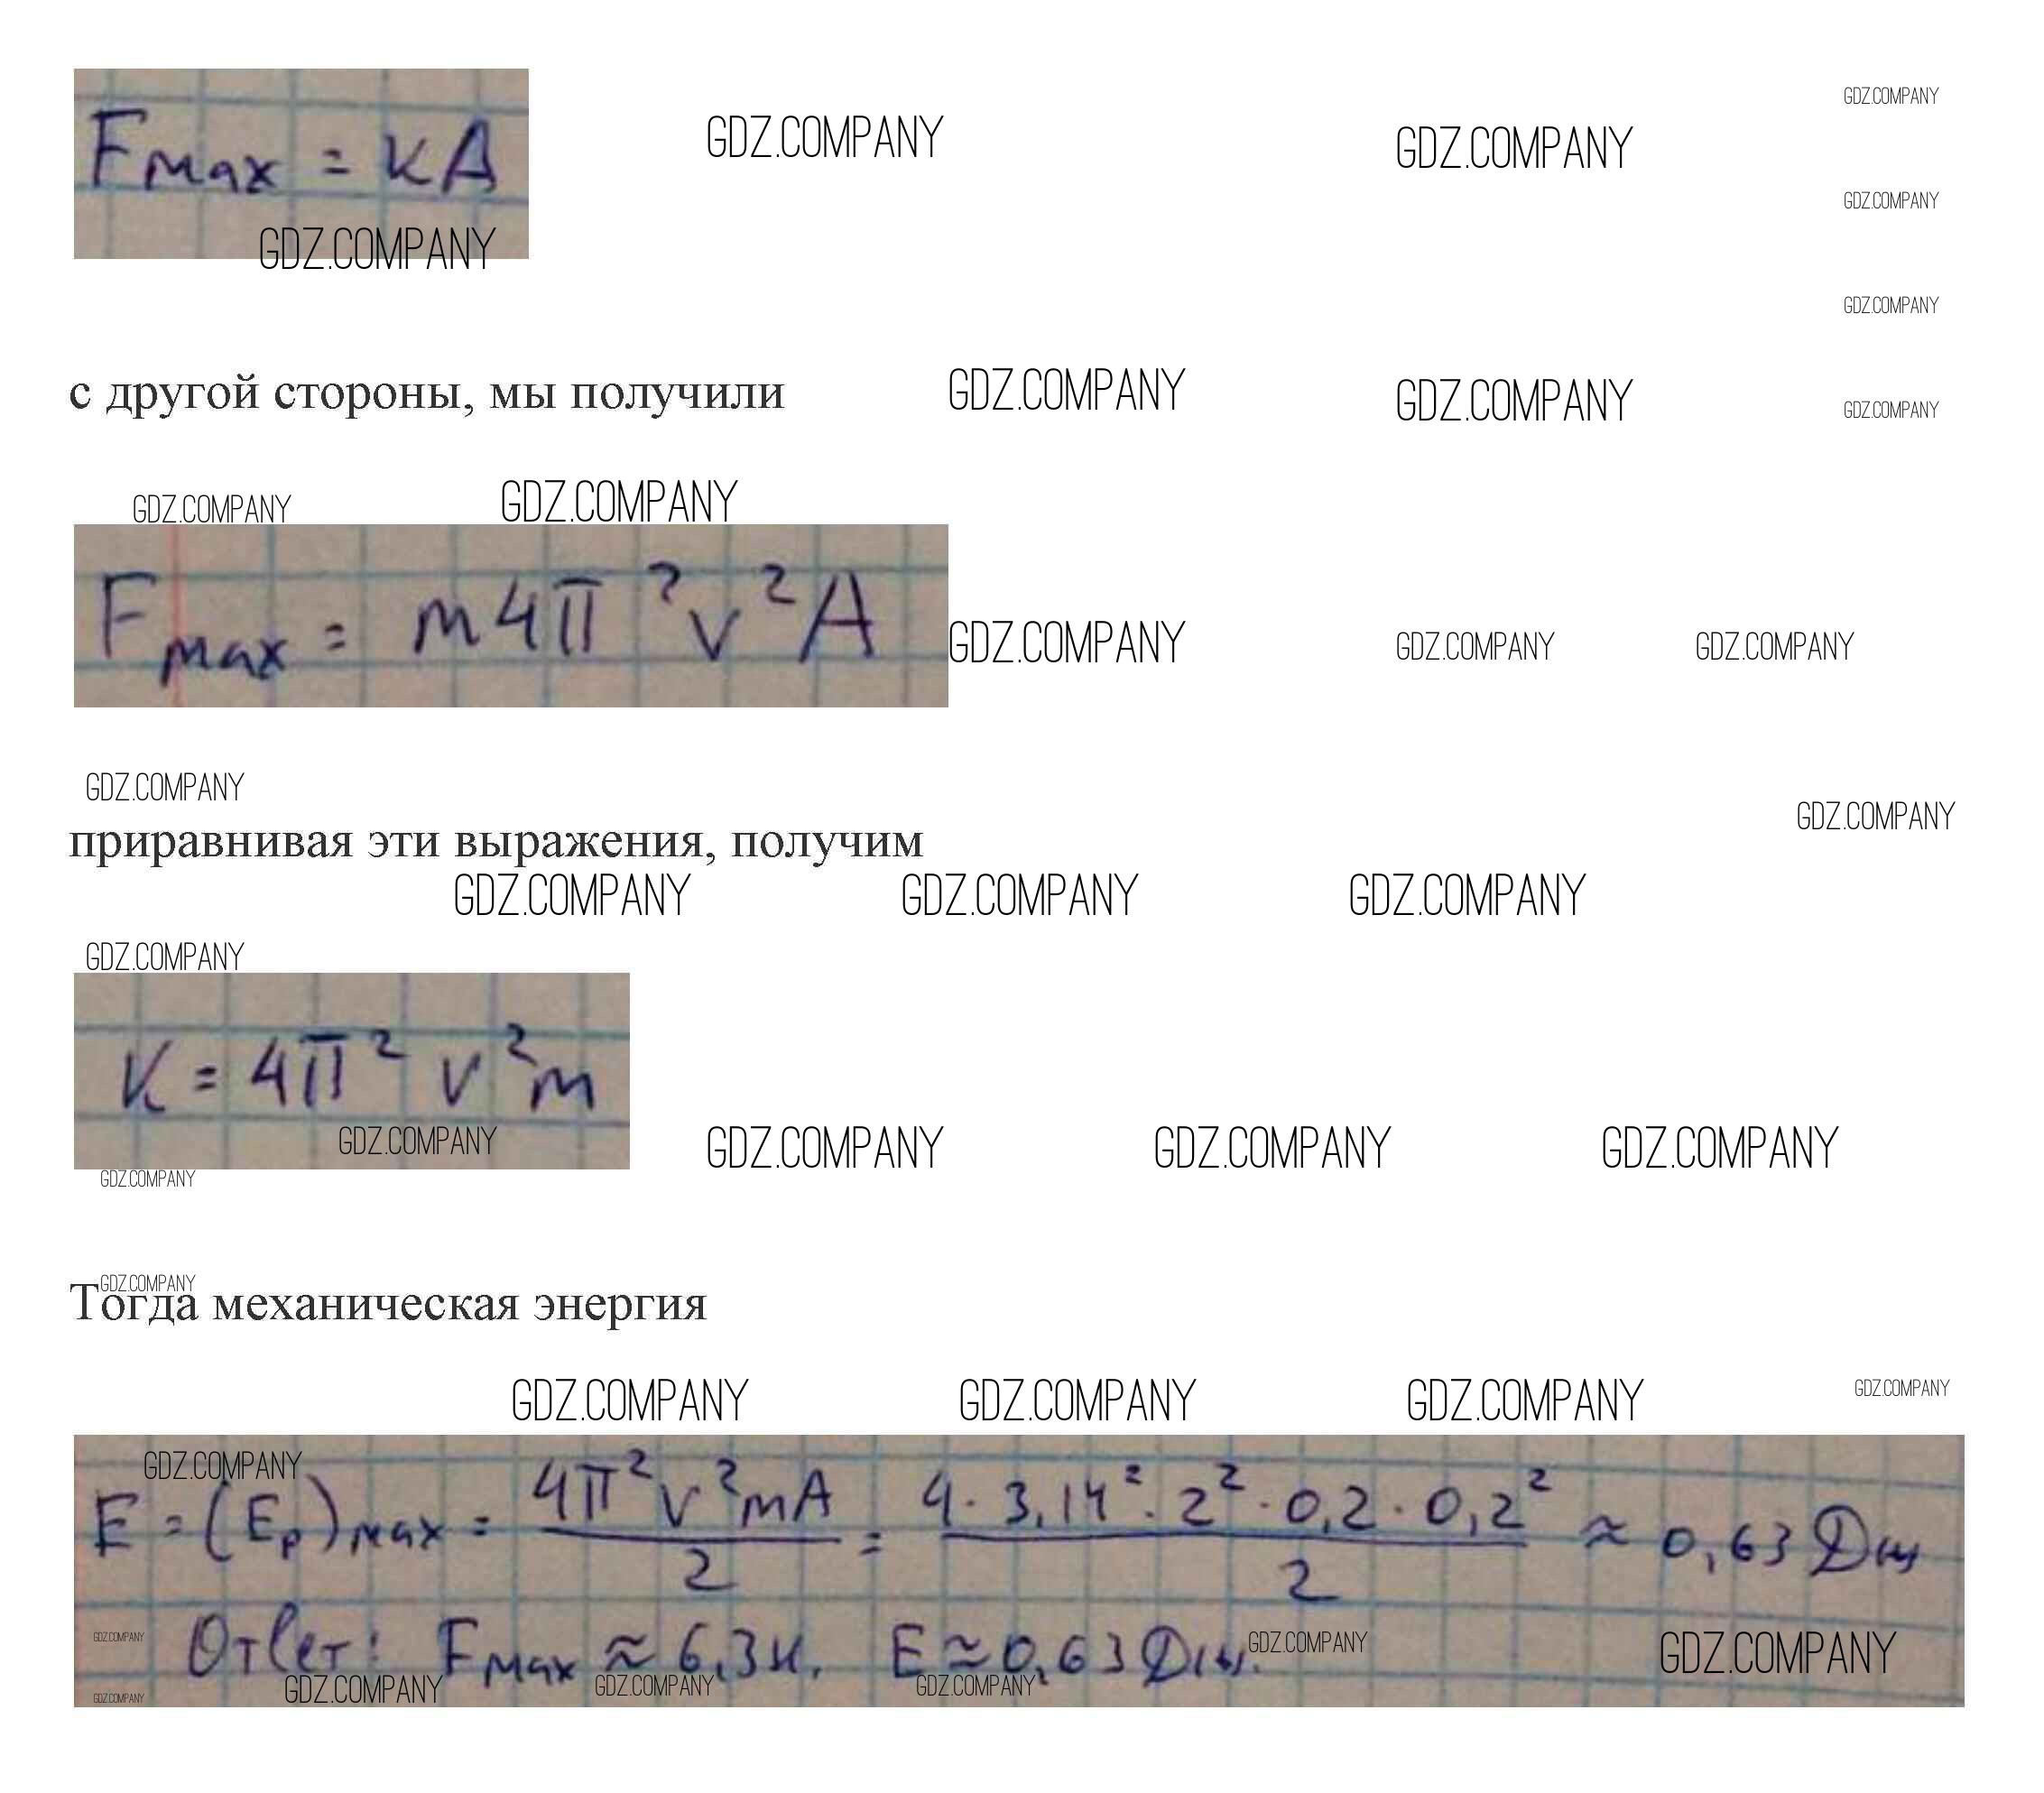 GDZ.COMPANY
Fмах = кА
GDZ.COMPANY GDZ.COMPANY
GDZ.COMPANY
GDZ.COMPANY
GDZ.COMPANY
с другой стороны, мы получили
GDZ.COMPANY GDZ.COMPANY GDZ.COMPANY
GDZ.COMPANY GDZ.COMPANY
Fмах = m4π²ν²A
GDZ.COMPANY GDZ.COMPANY GDZ.COMPANY
GDZ.COMPANY
GDZ.COMPANY
приравнивая эти выражения, получим
GDZ.COMPANY GDZ.COMPANY GDZ.COMPANY
GDZ.COMPANY
K = 4π² ν²m
GDZ.COMPANY GDZ.COMPANY GDZ.COMPANY GDZ.COMPANY
GDZ.COMPANY
GDZ.COMPANY
Тогда механическая энергия
GDZ.COMPANY GDZ.COMPANY GDZ.COMPANY GDZ.COMPANY
GDZ.COMPANY
E = (Ep)мах = 4π²ν²mA / 2 = 4 · 3,14² · 2² · 0,2 · 0,2² / 2 ≈ 0,63 Дж
Ответ: Fмах ≈ 6,3н. E ≈ 0,63 Дж.
GDZ.COMPANY GDZ.COMPANY GDZ.COMPANY
GDZ.COMPANY GDZ.COMPANY GDZ.COMPANY GDZ.COMPANY